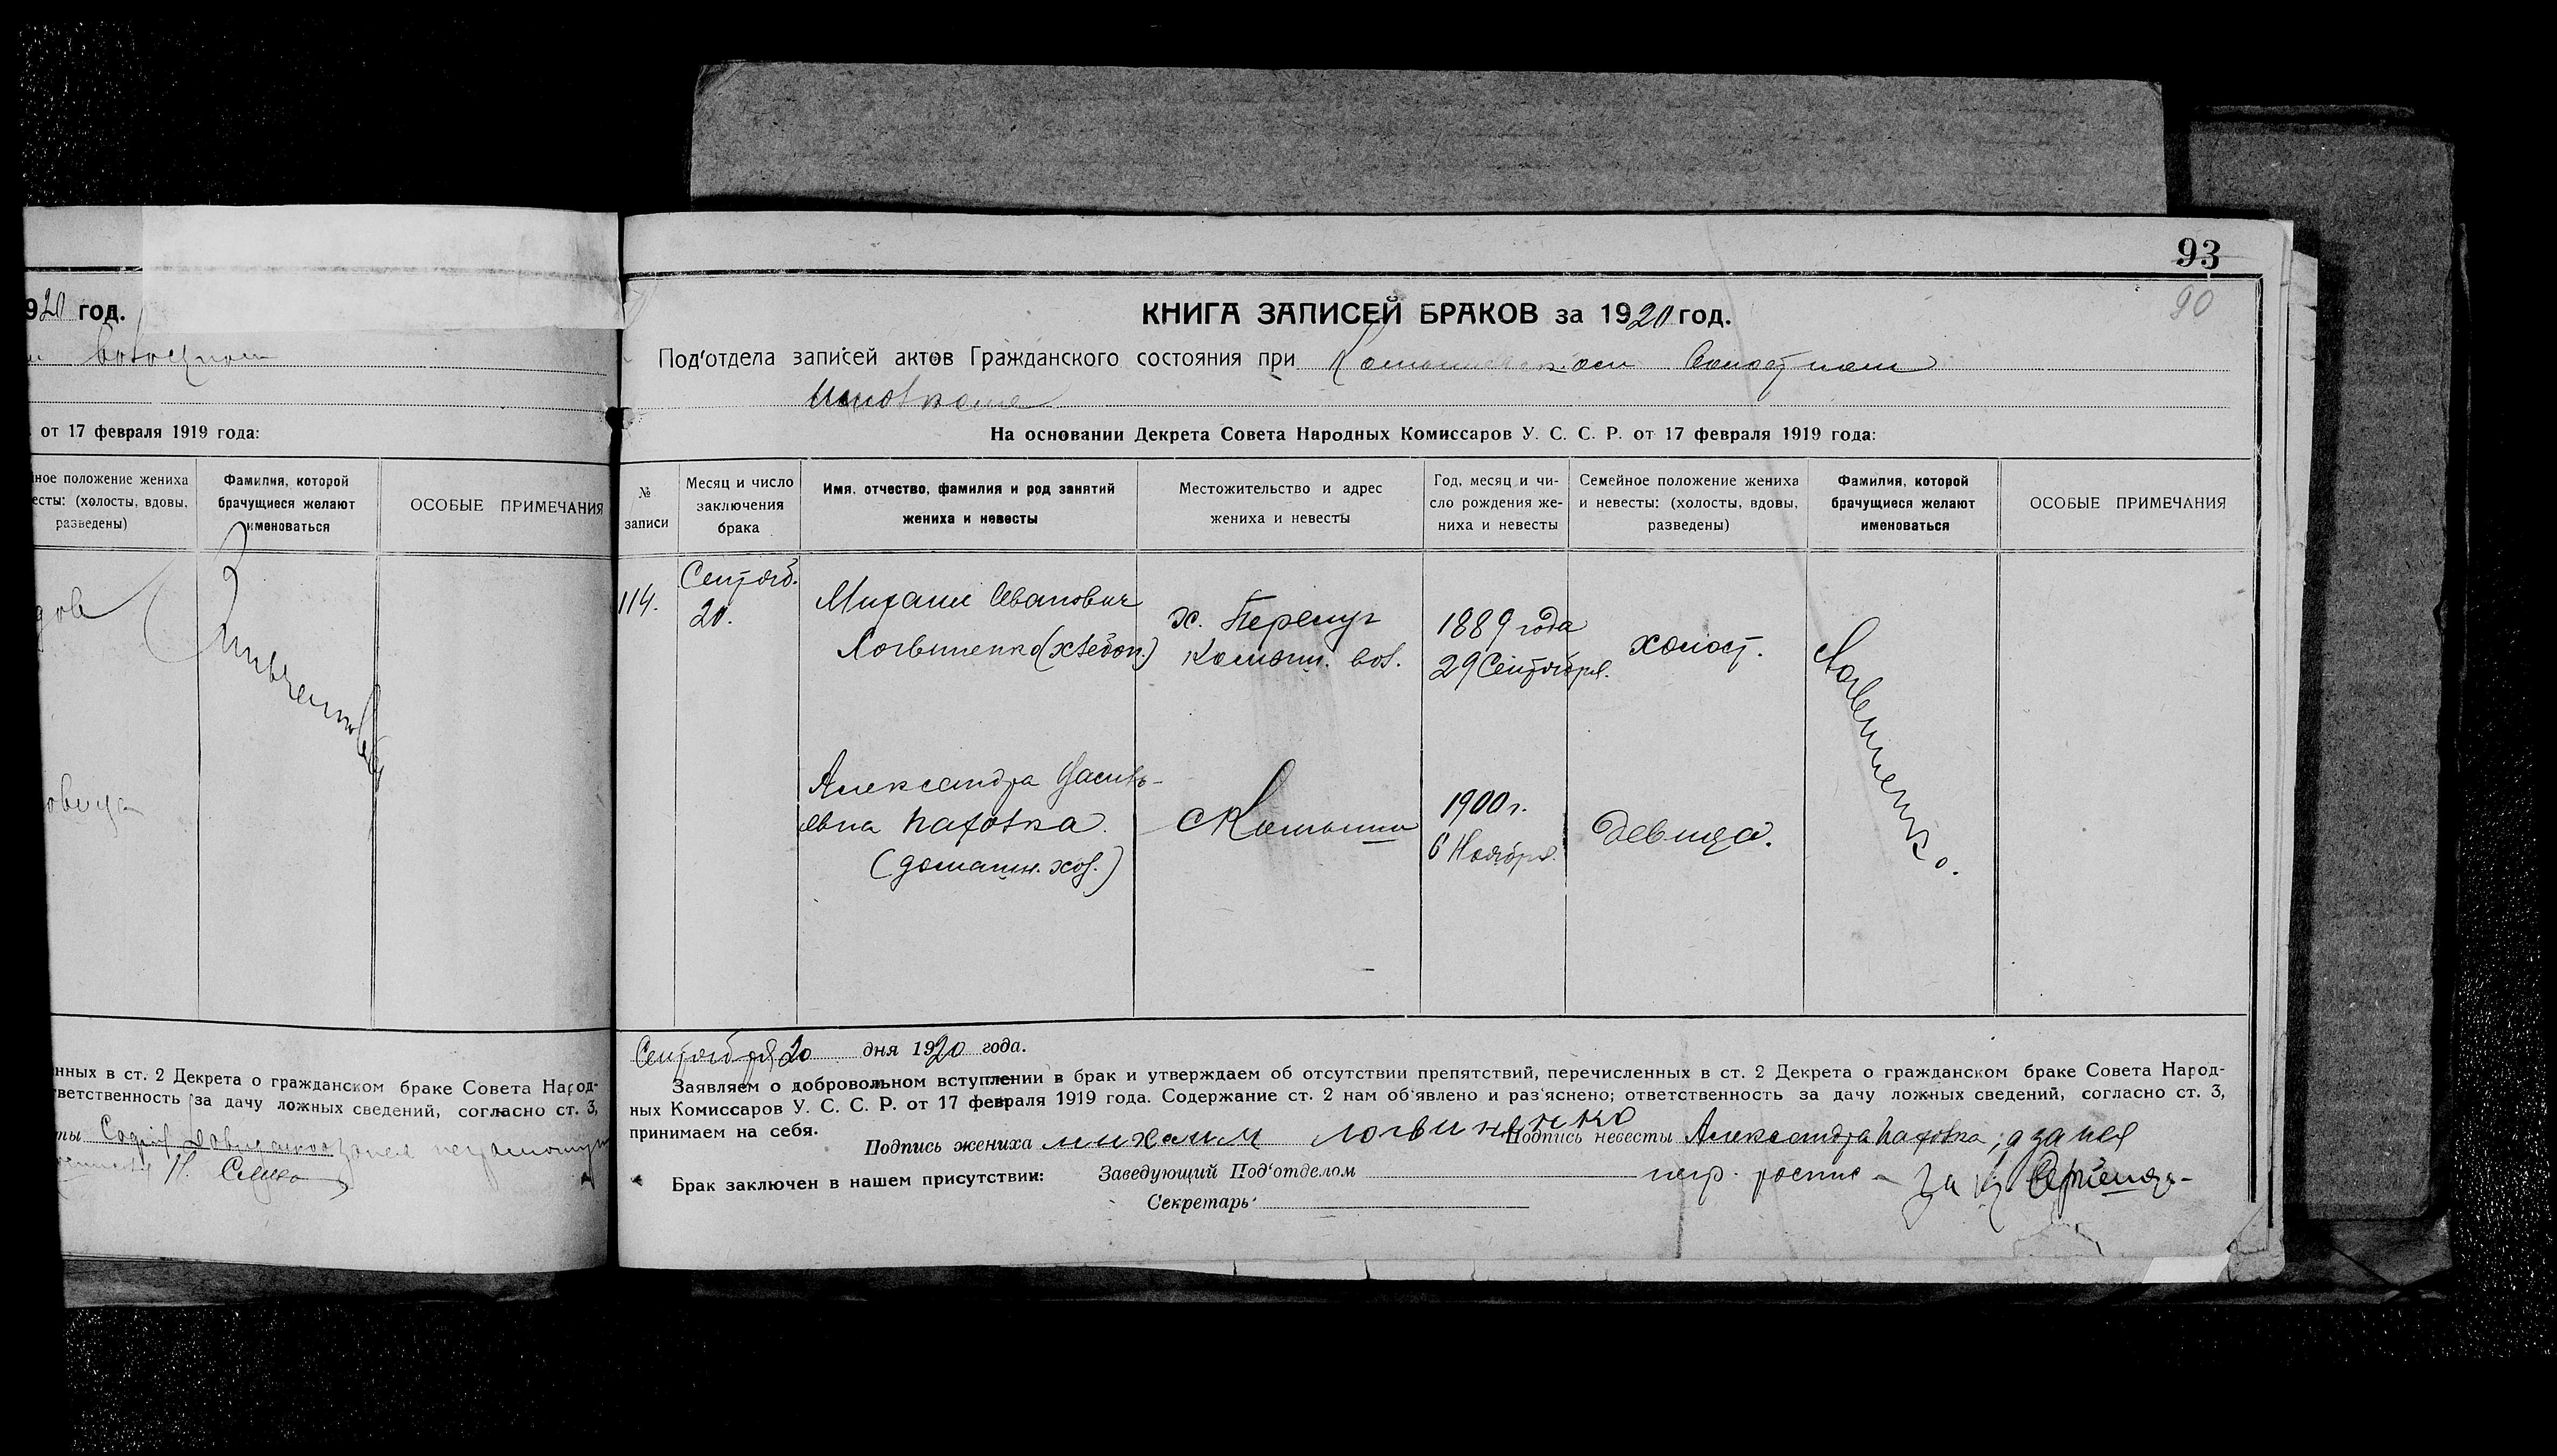 920 год.
волостном
от 17 февраля 1919 года:
ное положение жениха
есты: (холосты, вдовы,
разведены)
Фамилия, которой
брачущиеся желают
именоваться
ОСОБЫЕ ПРИМЕЧАНИЯ
нных в ст. 2 Декрета о гражданском браке Совета Народ-
ветственность за дачу ложных сведений, согласно ст. 3,
ты
93
90
КНИГА ЗАПИСЕЙ БРАКОВ за 1920 год.
Под'отдела записей актов Гражданского состояния при Волостном
Исполкоме
На основании Декрета Совета Народных Комиссаров У. С. С. Р. от 17 февраля 1919 года:
№
записи
Месяц и число
заключения
брака
Имя, отчество, фамилия и род занятий
жениха и невесты
Местожительство и адрес
жениха и невесты
Год, месяц и чи-
сло рождения же-
ниха и невесты
Семейное положение жениха
и невесты: (холосты, вдовы,
разведены)
Фамилия, которой
брачущиеся желают
именоваться
ОСОБЫЕ ПРИМЕЧАНИЯ
114.
Сентяб.
20.
Михаил Иванович
Логвиненко (хлебоп.)
х.
Комыш. вол.
1889 года
29 Сентября.
холост.
Логвиненко.
Александра Василь-
евна
(домашн. хоз.)
с Комышни
1900 г.
6 Ноября.
девица.
Сентября 20 дня 1920 года.
Заявляем о добровольном вступлении в брак и утверждаем об отсутствии препятствий, перечисленных в ст. 2 Декрета о гражданском браке Совета Народ-
ных Комиссаров У. С. С. Р. от 17 февраля 1919 года. Содержание ст. 2 нам об'явлено и раз'яснено; ответственность за дачу ложных сведений, согласно ст. 3,
принимаем на себя.
Подпись жениха михаил логвиненко Подпись невесты Александра, а за нея
Брак заключен в нашем присутствии: Заведующий Под'отделом негр. роспис
Секретарь